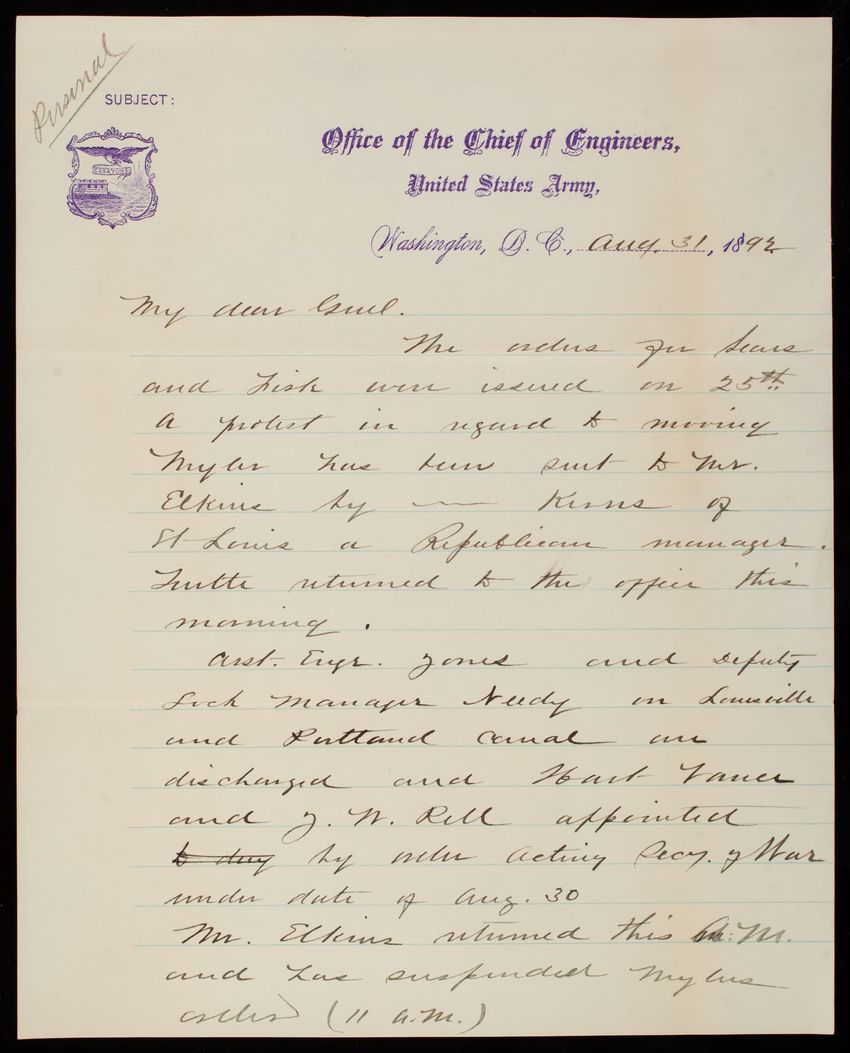 Personal
SUBJECT:
ESSAYONS
Office of the Chief of Engineers,
United States Army,
Washington, D. C., Aug. 31, 1892
My dear Genl.
The orders for Sears
and Fisk were issued on 25th.
A protest in regard to moving
Myler has been sent to Mr.
Elkins by — Kerns of
St Louis a Republican manager.
Tuttle returned to the office this
morning.
Asst. Engr. Jones and Deputy
Lock Manager Needy on Louisville
and Portland Canal are
discharged and Hart Vance
and J. W. Rell appointed
to day by order Acting Secy. of War
under date of Aug. 30
Mr. Elkins returned this A.M.
and has suspended Mylers
orders (11 a.m.)